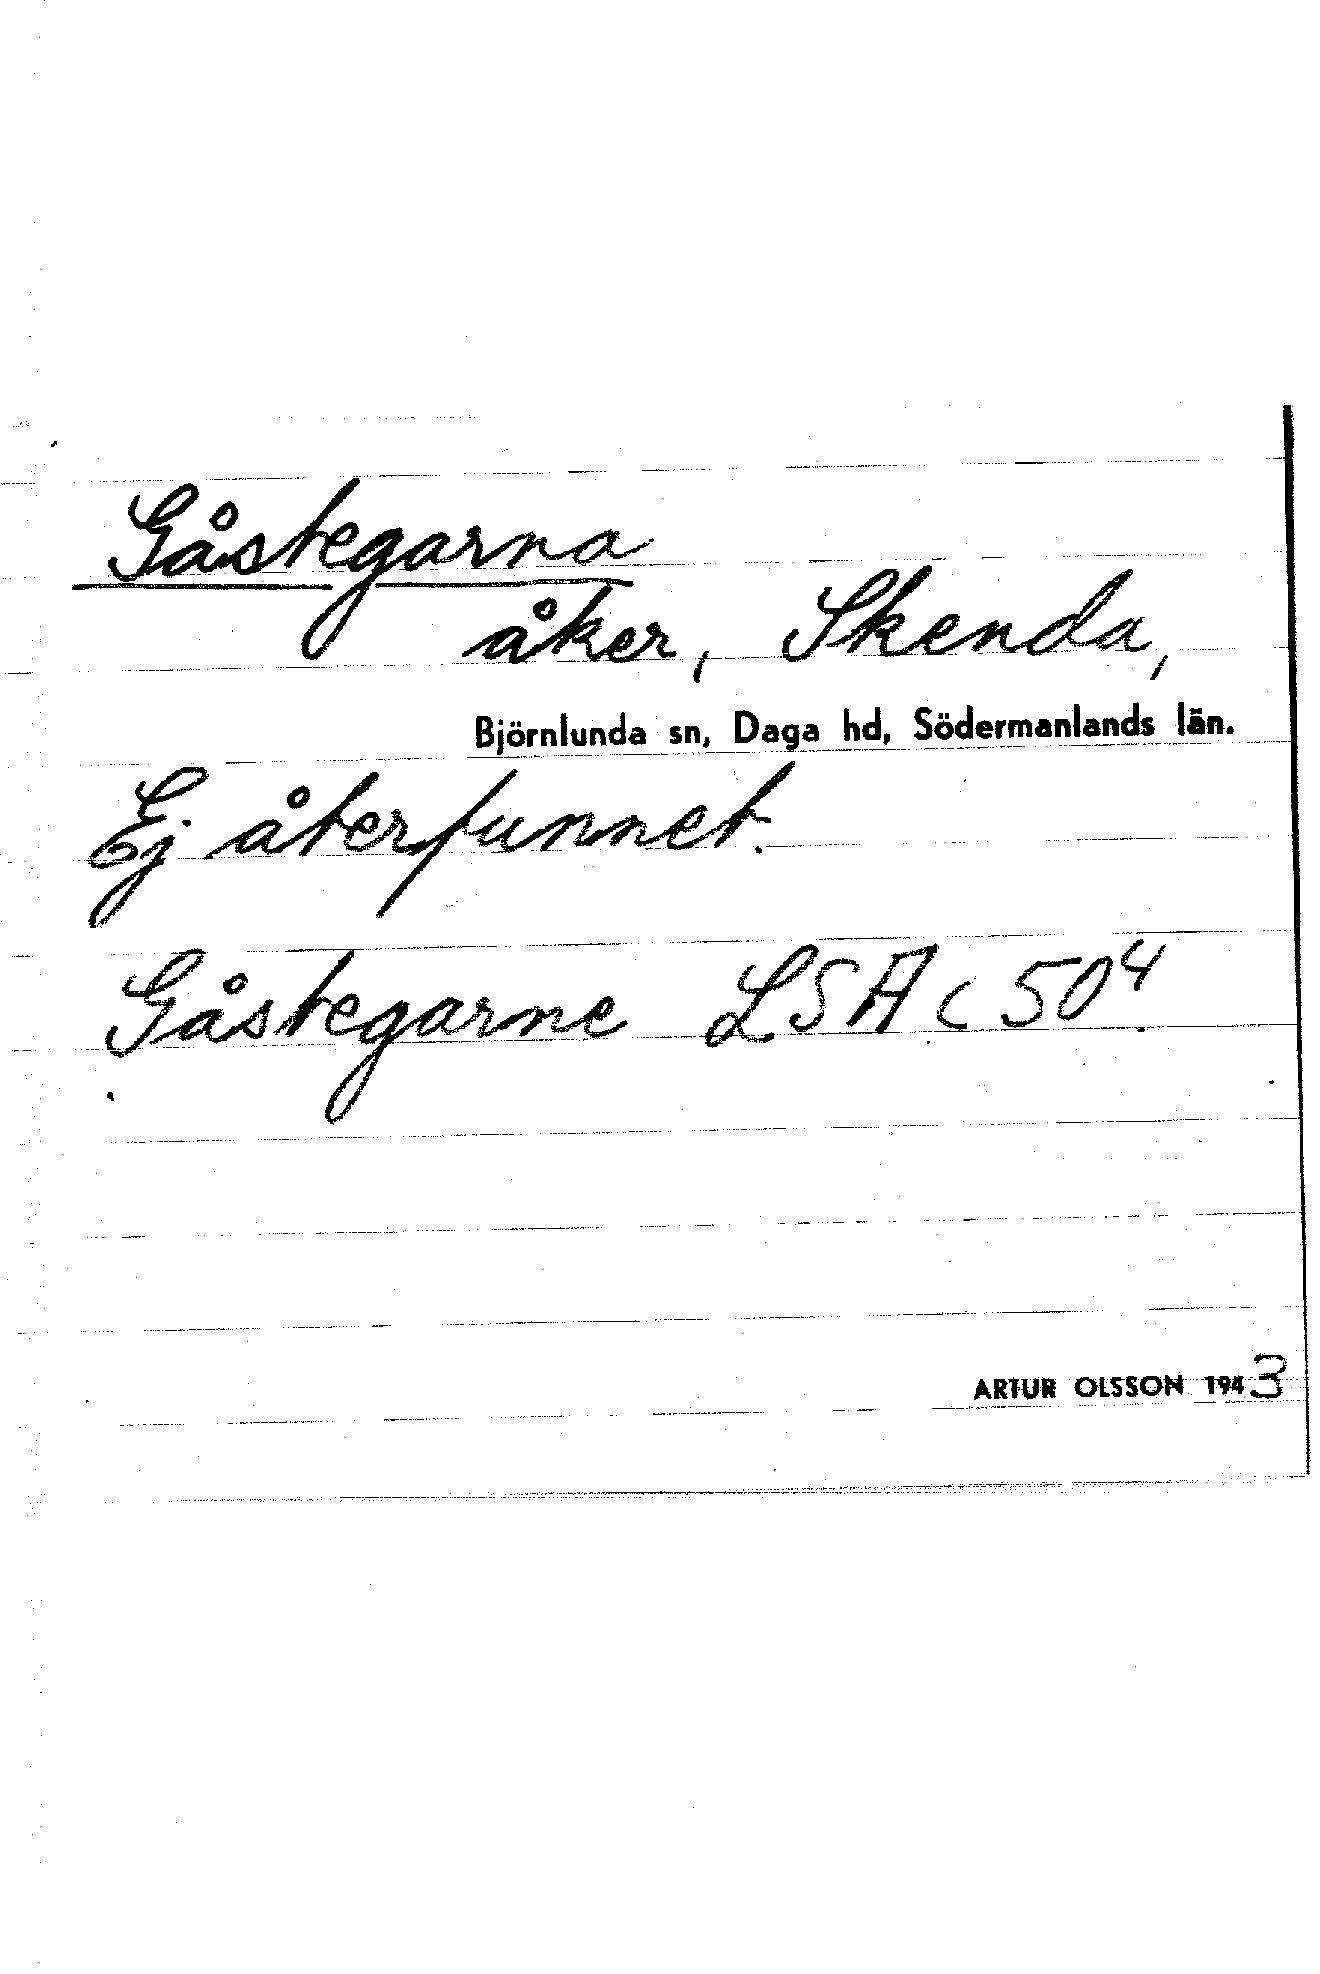 Gåstegarna
åker, Skenda,
Björnlunda sn, Daga hd, Södermanlands län.
Ej återfunnet.
Gåstegarne LSA c 50⁴
ARTUR OLSSON 1943